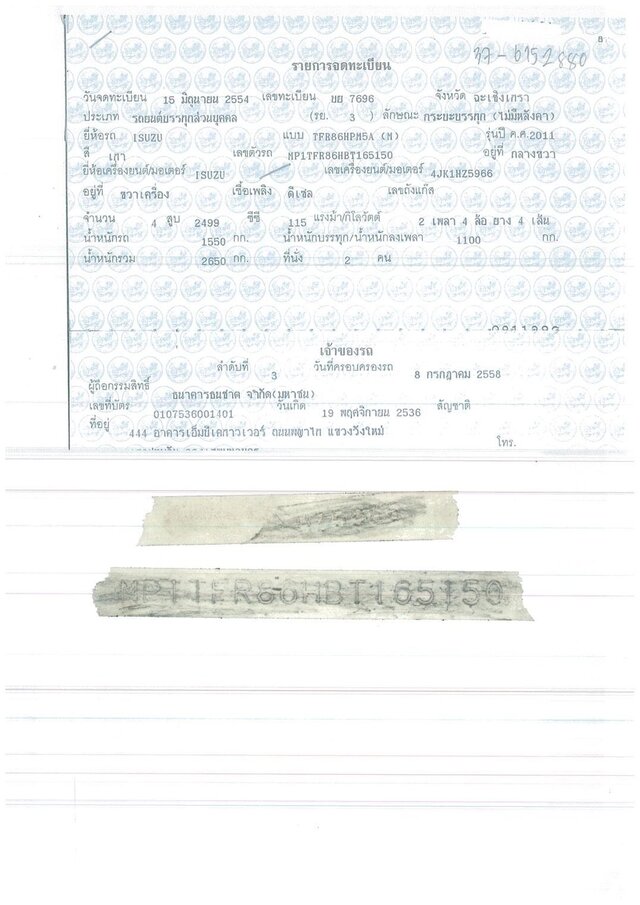 8
37-6152880
รายการจดทะเบียน
วันจดทะเบียน 15 มิถุนายน 2554 เลขทะเบียน 7696 จังหวัด ฉะเชิงเทรา
ประเภท รถยนต์บรรทุกส่วนบุคคล (รย. 3 ) ลักษณะ กระบะบรรทุก (ไม่มีหลังคา)
ยี่ห้อรถ ISUZU แบบ TFR86HPM5A (M) รุ่นปี ค.ศ.2011
สี เทา เลขตัวรถ MP1TFR86HBT165150 อยู่ที่ กลางขวา
ยี่ห้อเครื่องยนต์/มอเตอร์ ISUZU เลขเครื่องยนต์/มอเตอร์ 4JK1HZ5966
อยู่ที่ ขวาเครื่อง เชื้อเพลิง ดีเซล เลขถังแก๊ส
จำนวน 4 สูบ 2499 ซีซี 115 แรงม้า/กิโลวัตต์ 2 เพลา 4 ล้อ ยาง 4 เส้น
น้ำหนักรถ 1550 กก. น้ำหนักบรรทุก/น้ำหนักลงเพลา 1100 กก.
น้ำหนักรวม 2650 กก. ที่นั่ง 2 คน
เจ้าของรถ
ลำดับที่ 3 วันที่ครอบครองรถ 8 กรกฎาคม 2558
ผู้ถือกรรมสิทธิ์ ธนาคารธนชาต จำกัด(มหาชน)
เลขที่บัตร 0107536001401 วันเกิด 19 พฤศจิกายน 2536 สัญชาติ
ที่อยู่ 444 อาคารเอ็มบีเคทาวเวอร์ ถนนพญาไท แขวงวังใหม่
โทร.
MP1TFR86HBT165150